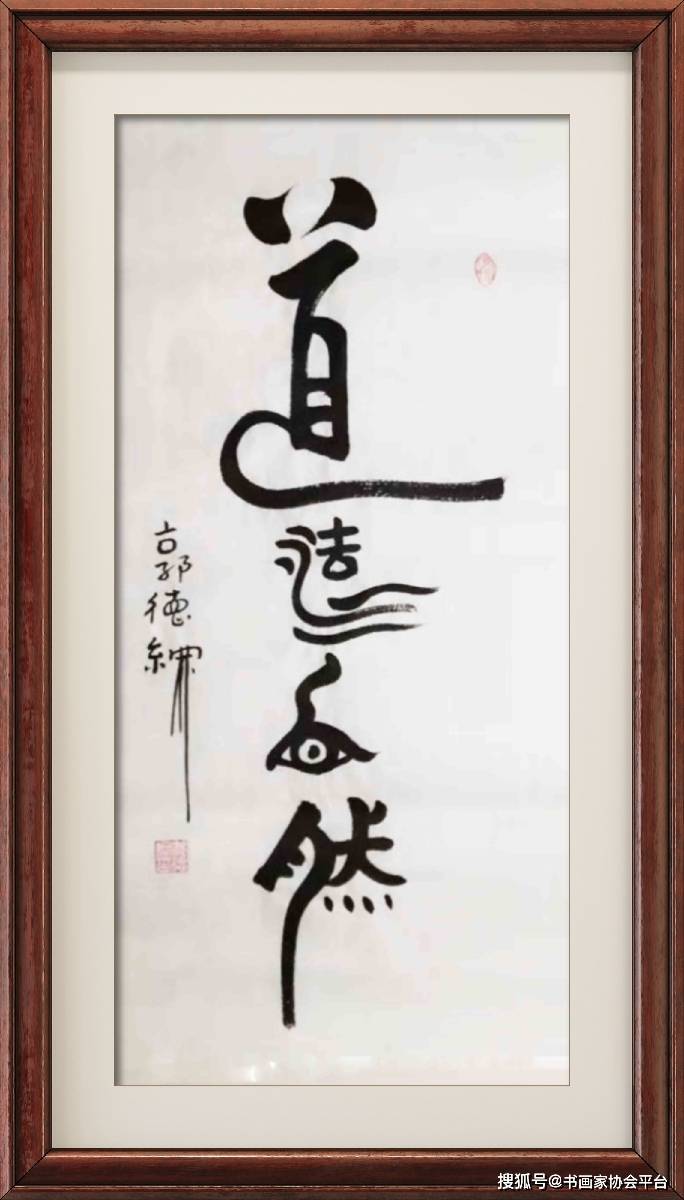 道法自然
郭德綱
搜狐号@书画家协会平台